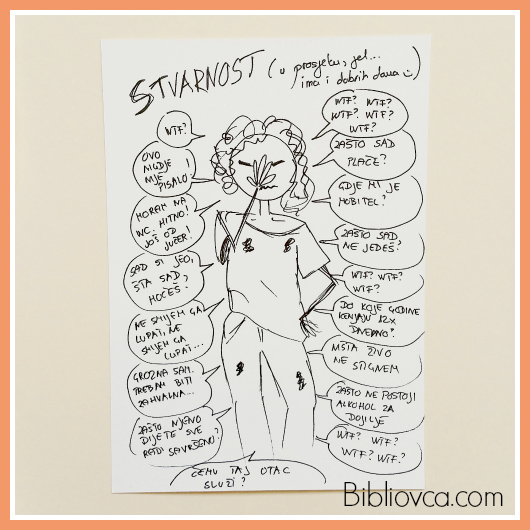 STVARNOST (u prosjeku, jel...
ima i dobrih dana)
WTF?
OVO
NIGDJE
NIJE
PISALO!
MORAM NA
WC. HITNO!
JOŠ OD
JUČER!
SAD SI JEO,
ŠTA SAD
HOĆEŠ?
NE SMIJEM GA
LUPATI, NE
SMIJEM GA
LUPAT...
GROZNA SAM.
TREBAM BITI
ZAHVALNA...
ZAŠTO NJENO
DIJETE SVE
RADI SAVRŠENO?
ČEMU TAJ OTAC
SLUŽI?
WTF? WTF?
WTF? WTF?
WTF?
ZAŠTO SAD
PLAČE?
GDJE MI JE
MOBITEL?
ZAŠTO SAD
NE JEDEŠ?
WTF? WTF?
WTF?
DO KOJE GODINE
KENJAJU 12X
DNEVNO?
NIŠTA ŽIVO
NE STIGNEM
ZAŠTO NE POSTOJI
ALKOHOL ZA
DOJILJE
WTF? WTF?
WTF? WTF?
Bibliovca.com